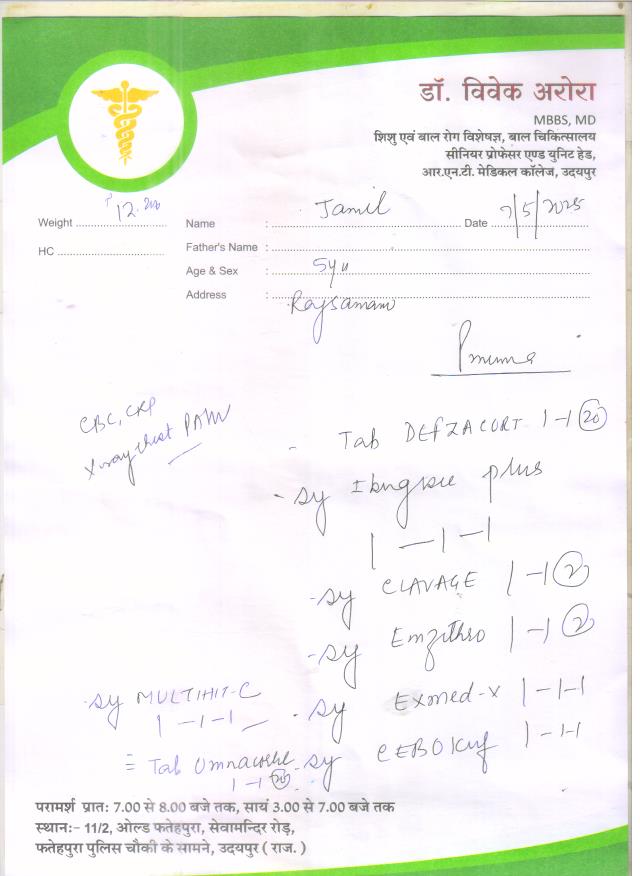 डॉ. विवेक अरोरा
MBBS, MD
शिशु एवं बाल रोग विशेषज्ञ, बाल चिकित्सालय
सीनियर प्रोफेसर एण्ड युनिट हेड,
आर.एन.टी. मेडिकल कॉलेज, उदयपुर
Weight 12.200
Name : Jamil Date 7/5/2025
HC
Father's Name :
Age & Sex : 5y
Address :
CBC, CRP
X-ray chest PA
- Tab DEFZACORT 1-1 (20)
- Sy plus
1-1-1
- Sy CLAVAGE 1-1 (2)
- Sy Emzithro 1-1 (2)
- Sy MULTIHIT-C
1-1-1
- Sy Exmed-X 1-1-1
= Tab
1-1
- Sy 1-1-1
परामर्श प्रात: 7.00 से 8.00 बजे तक, सायं 3.00 से 7.00 बजे तक
स्थान:- 11/2, ओल्ड फतेहपुरा, सेवामन्दिर रोड़,
फतेहपुरा पुलिस चौकी के सामने, उदयपुर ( राज. )